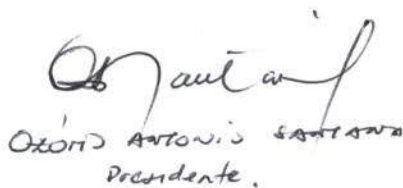 OZÓRIO ANTONIO SANTANA
Presidente.